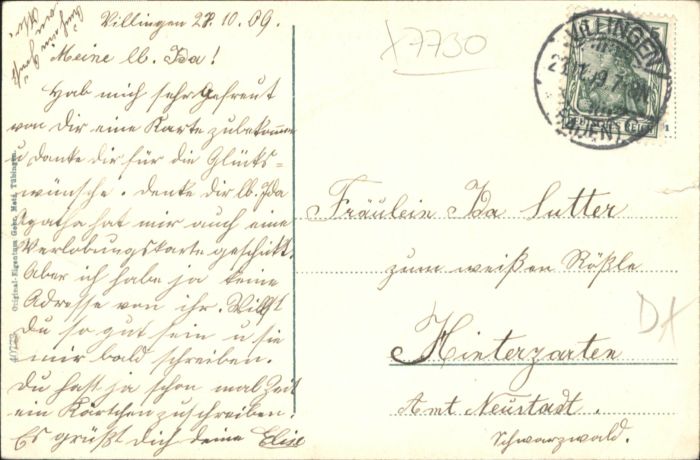 Villingen 27.10.09.
Meine lb. Ida!
Hab mich sehr gefreut
von Dir eine Karte zubekommen
u danke dir für die Glücks-
wünsche. Denke dir lb. Ida
Agatha hat mir auch eine
Verlobungskarte geschickt.
Aber ich habe ja keine
Adresse von ihr. Willst
Du so gut sein u sie
mir bald schreiben.
Du hast ja schon mal Zeit
ein Kärtchen zuschreiben.
Es grüßt Dich deine Elise
Original-Eigentum Gebr. Metz, Tübingen.
x7730
VILLINGEN
(BADEN)
Fräulein Ida Sutter
zum weißen Rößle
Hinterzarten
Amt Neustadt.
Schwarzwald.